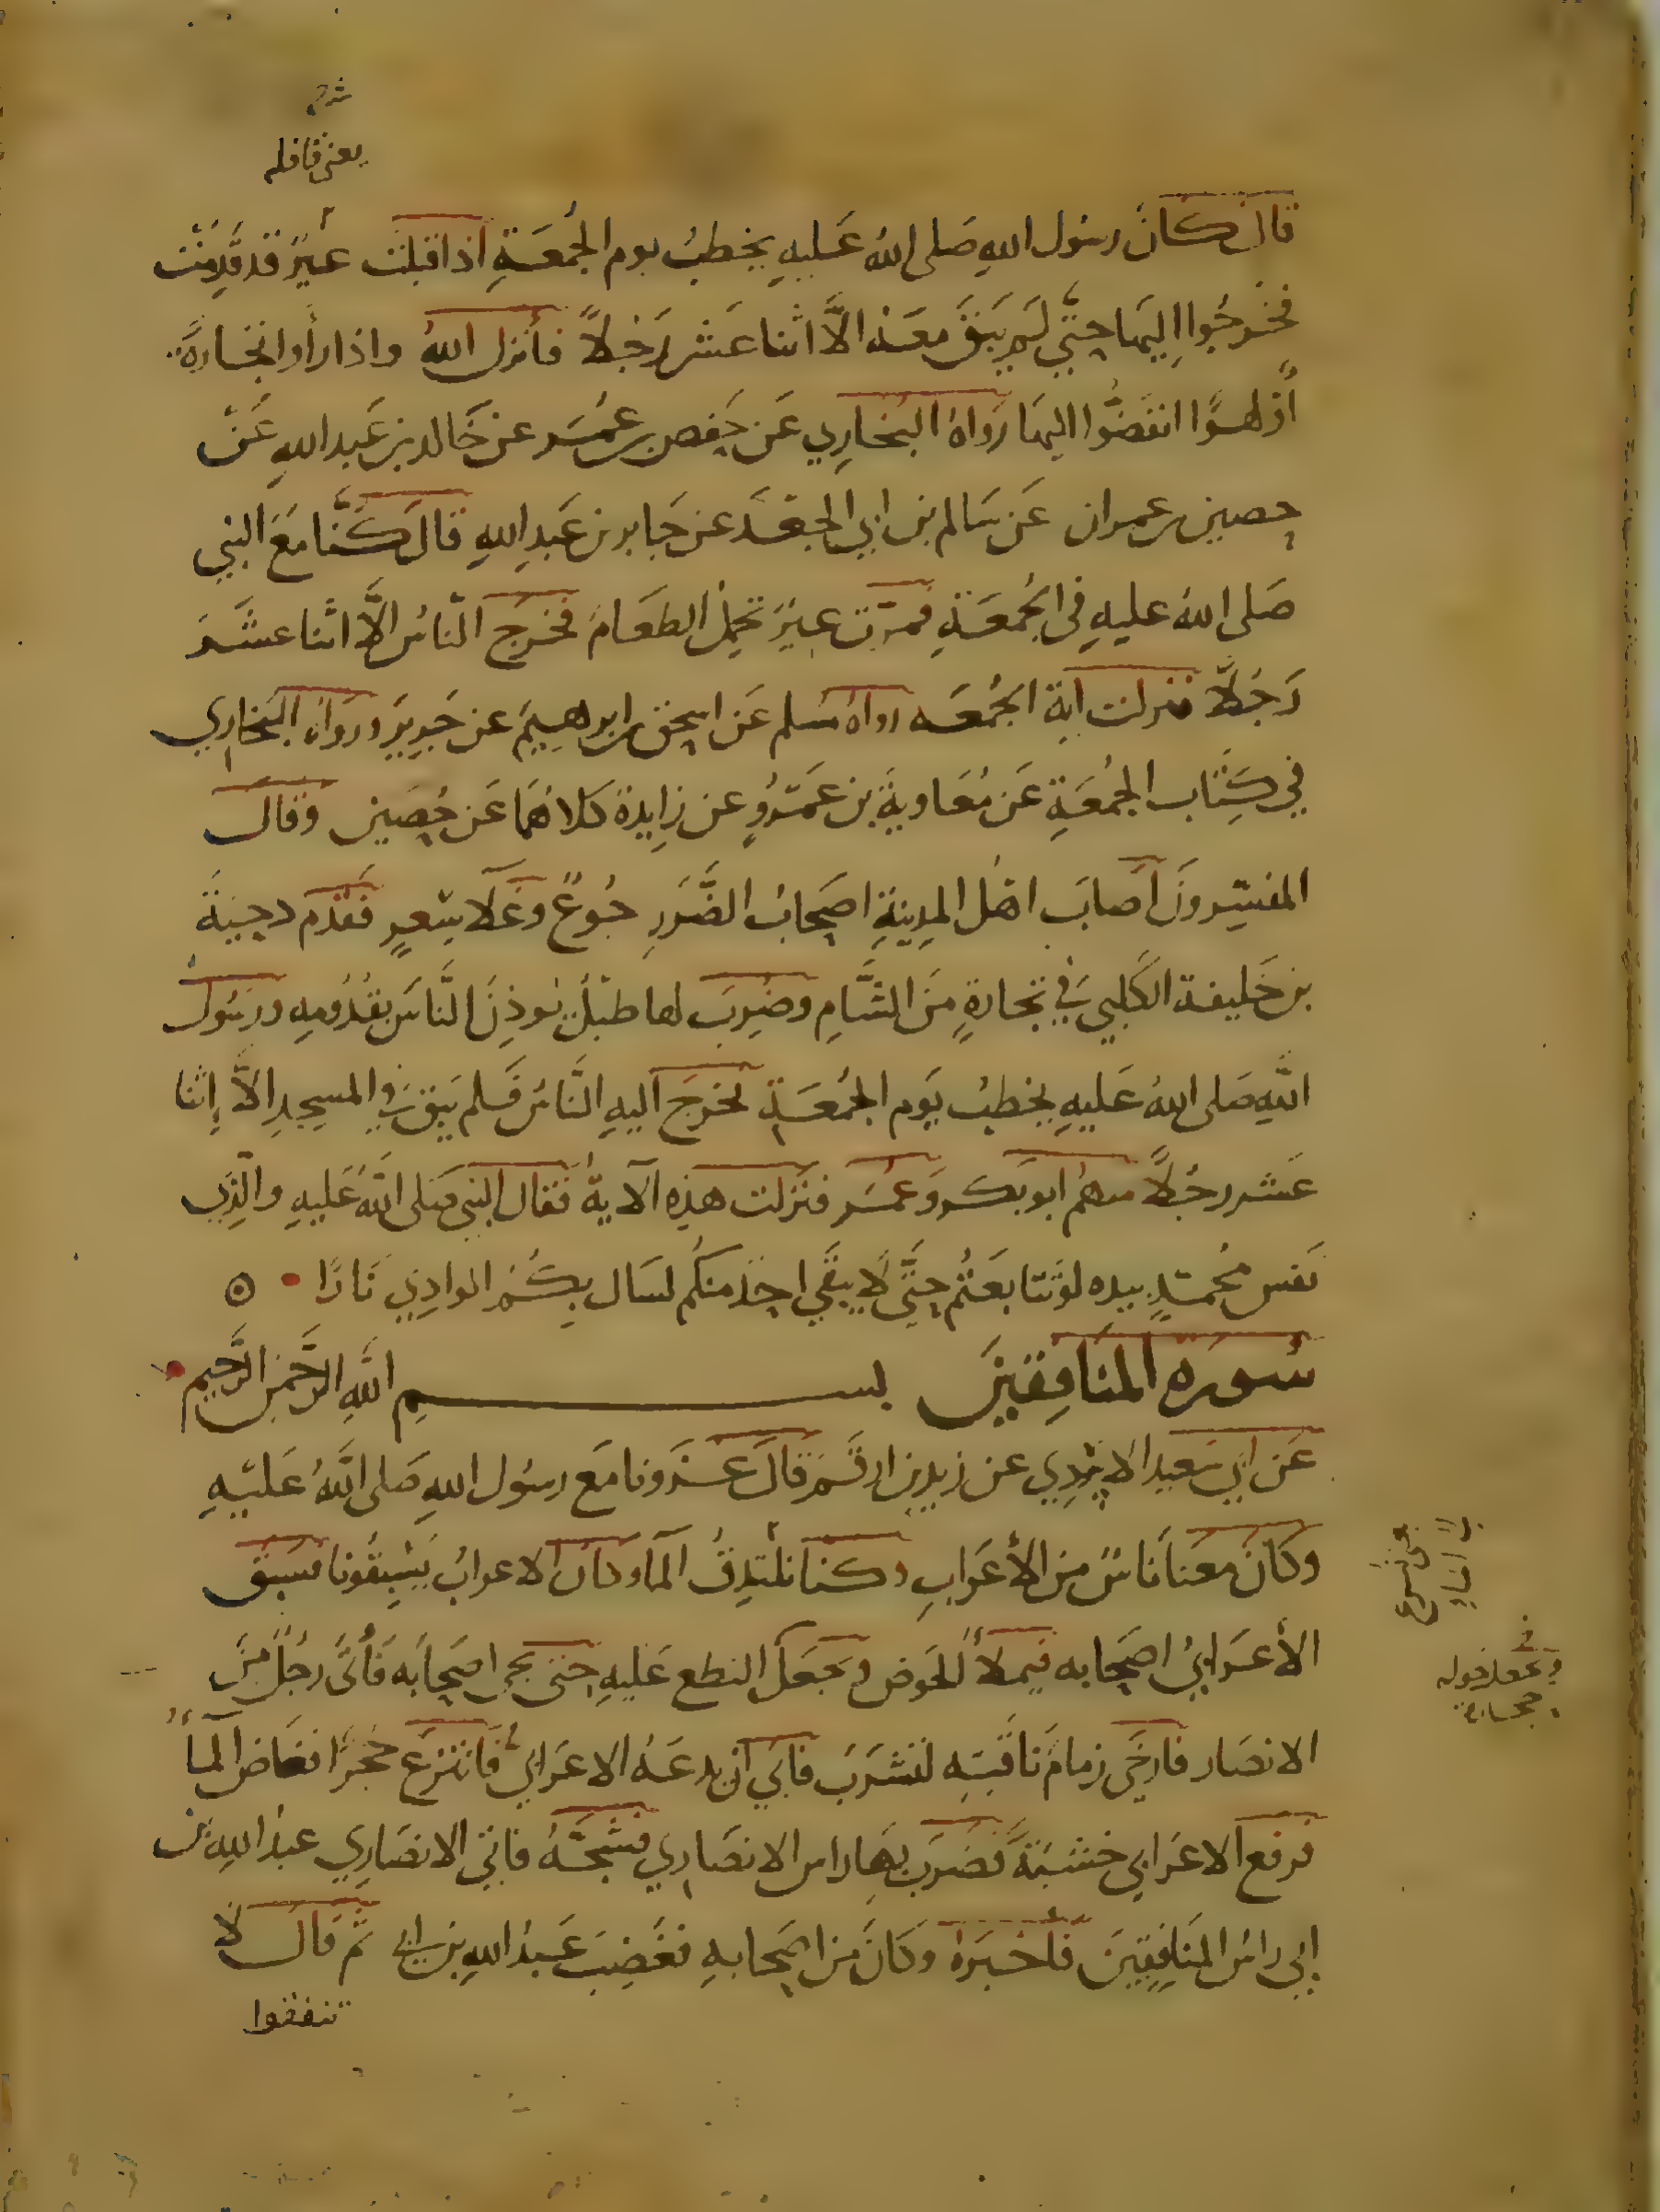 شرح
يعني قافله
قال كان رسول الله صَلى اللهُ عَليهِ يخطبُ يوم الجُمعَةِ اذ اقبلت عيرٌ قد قَدِمَت
فخرجُوا اليها حتّى لم يَبقَ معَهُ الاَّ اثنا عَشر رَجُلاً فأنزل اللهُ واذا رأوا تجارةً
أو لهوًا انفضُّوا اليها رَواهُ البُخاري عَن حَفص بن عُمَر عن خَالد بن عَبد اللهِ عَن
حصين بن عمران عَن سَالم بن ابي الجعَد عن جَابر بن عَبدِ اللهِ قالَ كنَّا مَعَ النبي
صَلى اللهُ عليهِ في الجُمعَةِ فمرّت عِيرٌ تحمِلُ الطعَامَ فخَرجَ الناسُ الاَّ اثنا عشَر
رَجُلاً فنزلت اية الجُمعَه رواهُ مُسلم عَن اسحق بن ابرهيمَ عن جَرِيرَ ورَواه البُخاري
في كِتَاب الجُمعَةِ عَن مُعَاويةَ بن عَمرٍو عن زايدة كلاهُمَا عَن حُصَين وقال
المفسِّرونَ اصابَ اهلَ المدِينةِ اصحابُ الضَّرَرِ جُوعٌ وغَلاَ سِعرٍ فقَدم دحيَةَ
بن خَليفة الكَلبي في تجارةٍ مِنَ الشَّامِ وضُرِبَ لها طبْلٌ يُوذِنُ النَّاسَ بقُدُومِهِ ورسُول
اللهِ صَلى اللهُ عَليهِ يخطبُ يَوم الجُمعَةِ فخرَجَ اليهِ النَّاسُ فَلم يَبقَ في المسجِدِ الاَّ اِثنا
عَشر رجُلاً منهم ابو بكر وَعُمَر فنَزلت هذِه الآيةُ فقال النبي صَلى اللهُ عَليهِ والّذي
نَفس مُحمّدٍ بيده لو تتابعَتُم حتَّى لا يبقَى احَدٌ منكُم لسَال بِكُم الوادِي نَارًا ۝
سُوره المنَافِقينَ بســـــمِ اللهِ الرَّحمنِ الرَّحيم
عَن ابي سَعيد الازدِي عن زيد بن ارقَم قالَ غَزونا مَع رسُول اللهِ صَلى اللهُ عَليهِ
وكَانَ معنَا نَاسٌ مِن الأعَرابِ وكنا نبتدِرُ الما وكان الاعرابُ يَسْبِقُونا فسَبق
الأعرَابيُ اصحَابه فيملأُ الحَوض ويَجعَلُ النطع عَليهِ حتى يجي اصحَابَه فأتَى رجُلٌ مِنَ
الانصَار فارخَى زمامَ نَاقتِه لتشرَبَ فابَى ان يدعَهُ الاعرَابيُ فَانتزع حَجَرًا فغَاض المآُ
فرفع الاعرَابي خشبَةً فضَرَبَ بهَا راس الانصَاري فشجّهُ فاتى الانصَارِي عبدُ اللهِ بن
ابي راسُ المنَافِقينَ فأخبَرَهُ وكَانَ من اصحَابهِ فغَضِبَ عَبدُ اللهِ بن ابي ثم قال لا
تنفقوا
ويجعل حوله
حجارة